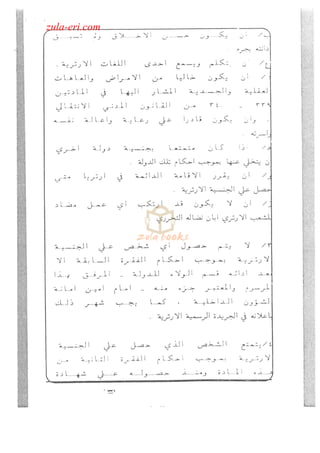 zula-eri.com
/ أن يكون حسن الاخلاق ولم تسبق
ادانته بجرم .
/ أن يتكلم ويسمع احدى اللغات الارترية .
/ أن يكون خاليا من الامراض والعاهات
العقلية والجسدية المشار اليها في المادتين
٣٣٩ - ٣٤٠ من القانون المدني الانتقالي
. وأن يكون قادرا على رعاية واعالة نفسه
واسرته .
/ اذا كان متمتعا بجنسية دولة اخرى
أن يتخلى عنها بموجب احكام تلك الدولة .
/ أن يقرر الاقامة الدائمة في ارتريا متى
حصل على الجنسية الارترية .
/ أن لا يكون قد ارتكب أي عمل مضاد
للشعب الارتري ابان نضاله التحرري
zula books
٣/ لا يتم حصول أي شخص على الجنسية
الارترية بموجب احكام الفقرة السابقة الا
بعد ادائه قسم الولاء للدولة - المرفق بهذا
المرسوم والمعتبر جزء منه - امام امين امانة
الشؤون الداخلية ، كما يجب شهر ذلك
باعلانه في الجريدة الرسمية الارترية .
٤/ يتمتع الشخص الذي حصل على الجنسية
الارترية بموجب احكام الفقرة الثانية من
هذه المادة ومنذ حصوله على شهادة